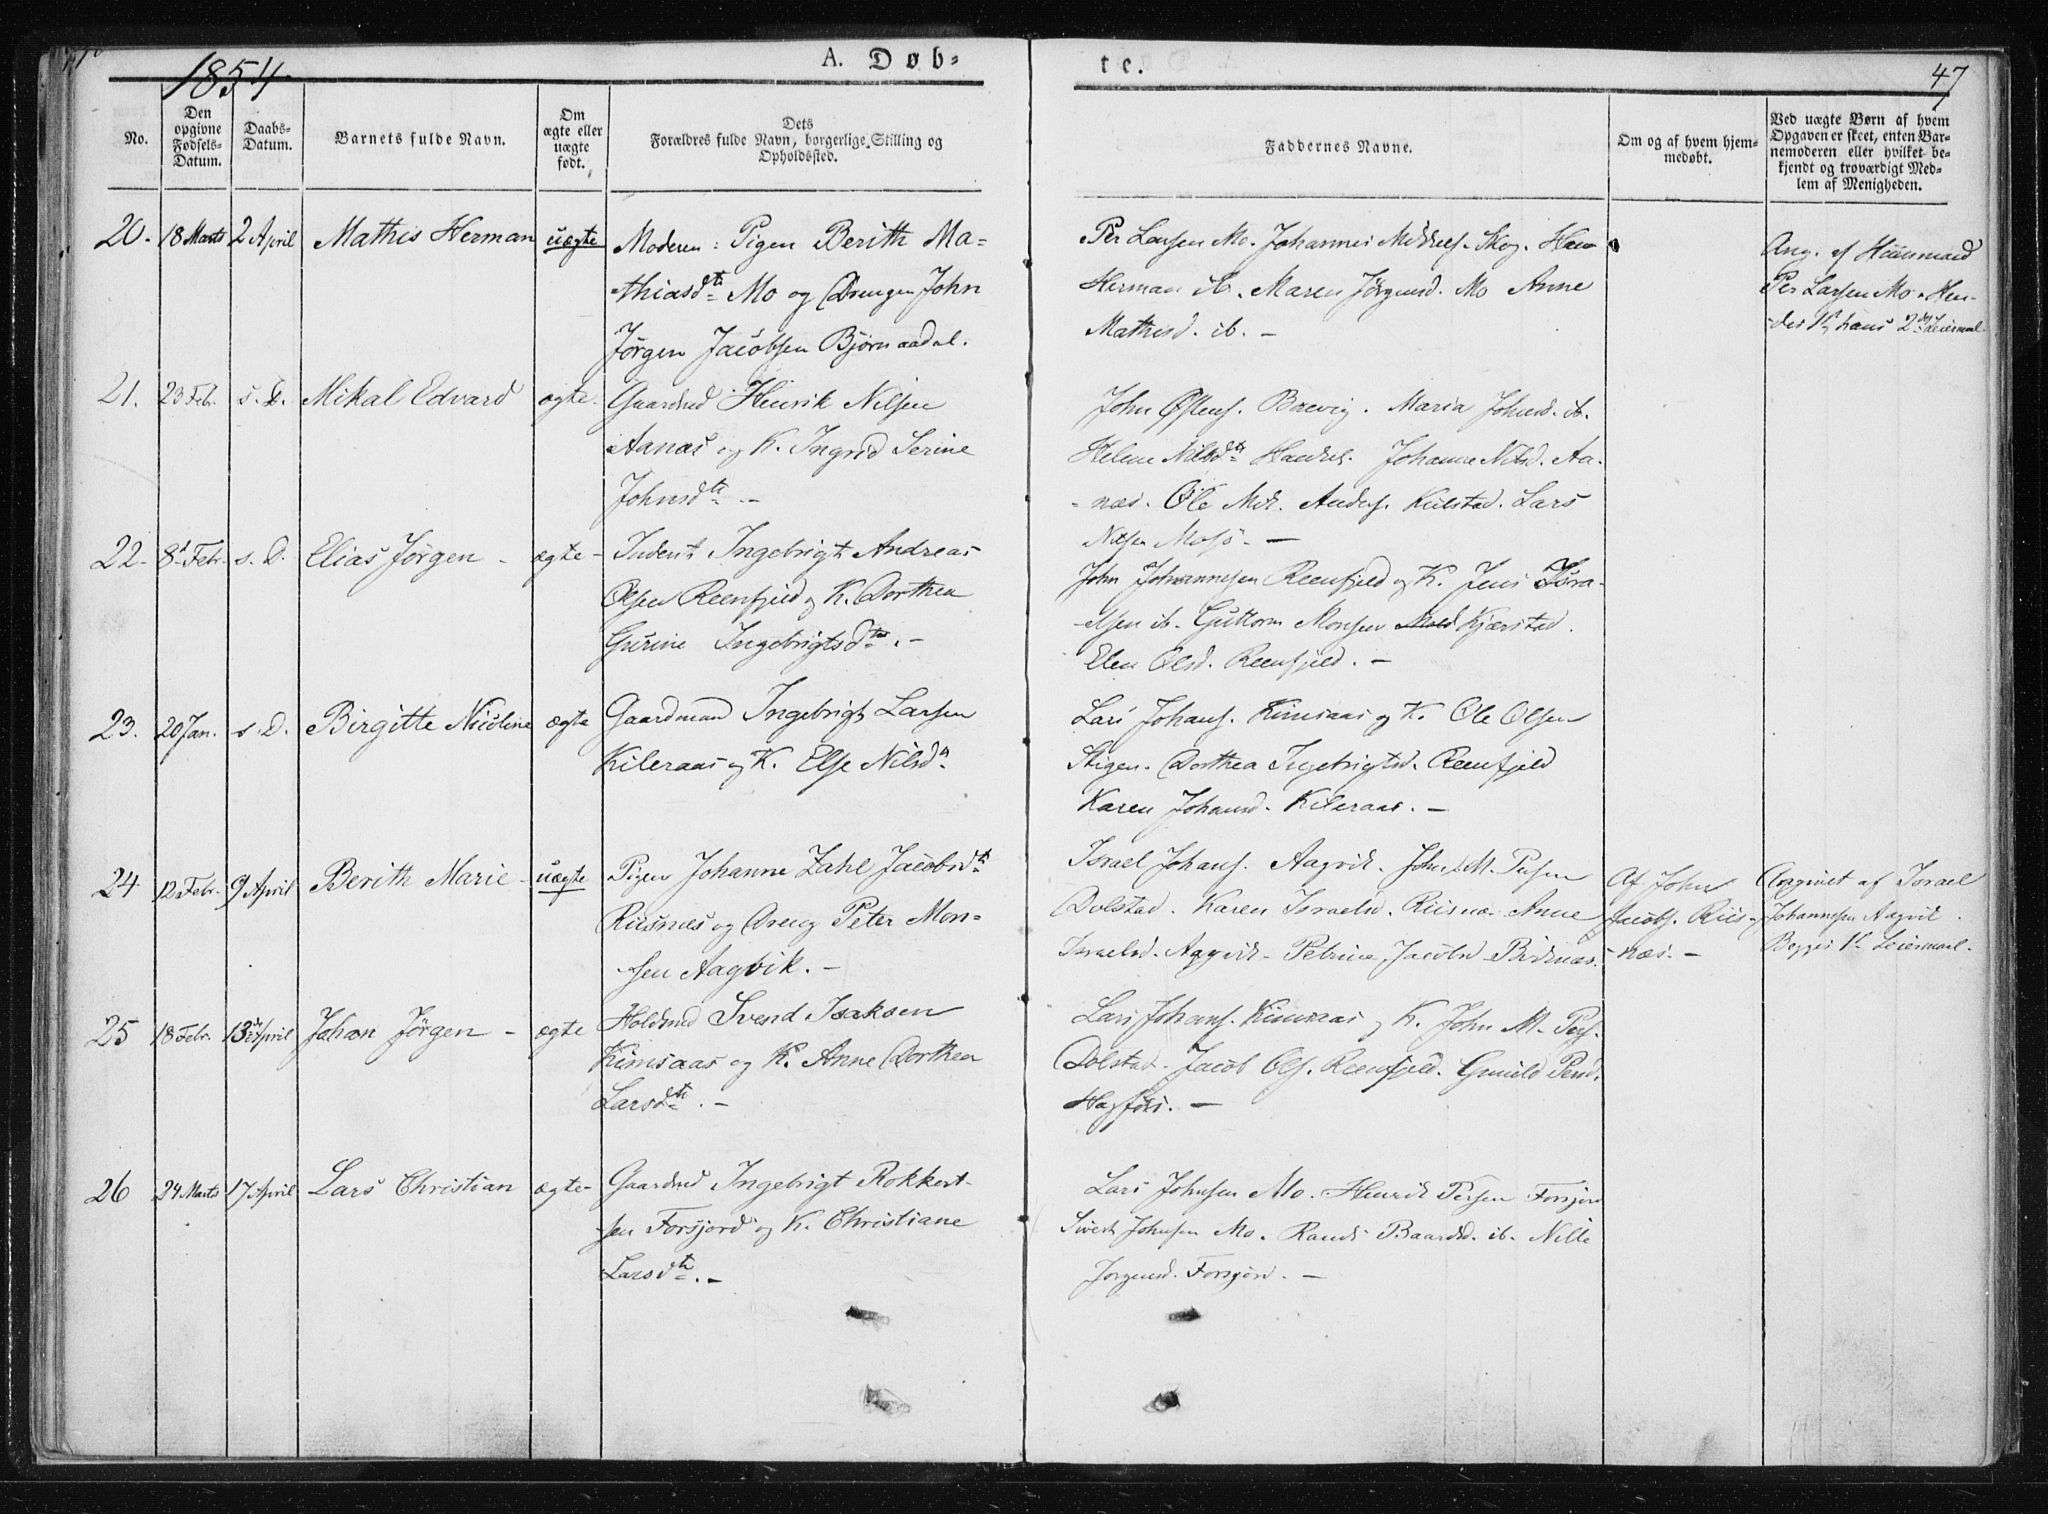 1854.
A. Døb-
te.
47
No.
Den opgivne Fødsels-Datum.
Daabs-Datum.
Barnets fulde Navn.
Om ægte eller uægte født.
Dets
Forældres fulde Navn, borgerlige Stilling og
Opholdssted.
Faddernes Navne.
Om og af hvem hjem-
medøbt.
Ved uægte Børn af hvem
Opgaven er skeet, enten Bar-
nemoderen eller hvilket be-
kjendt og troværdigt Med-
lem af Menigheden.
20. 18 Marts 2 April Mathis Herman uægte Moderen: Pigen Berith Ma-
thiasdtr Mo og Drengen John
Jørgen Jacobsen Bjørnaadal.
Per Larsen Mo. Johannes Skog.
Herman ib. Maren Jørgensd. Mo Anne
Mathisd. ib. -
Ang. af Huusmand
Per Larsen Mo. Hen-
des 1ste hans 2det Leiermaal.
21. 23 Febr. s. D. Mikal Edvard ægte Gaardmd Henrik Nilsen
Aanæs og K. Ingrid Serine
Johnsdtr. -
John Østens. Baevig. Maria Johnsd. ib.
Helene Nilsdtr Johanne Nilsd. Aa-
næs. Ole Mik. Anders. Kulstad. Lars
22. 8de Febr. s. D. Elias Jørgen - ægte - Inderst Ingebrigt Andreas
Olsen Reenfjeld og K. Dorthea
Gurine Ingebrigtsdtr. -
John Johannesen Reenfjeld og K. Jens Isra-
elsen ib. Guttorm Monsen Kjærstad.
Elen Olsd. Reenfjeld. -
23. 20 Jan. s. D. Birgitte Nicoline ægte Gaardmand Ingebrigt Larsen
Kileraas og K. Else Nilsdtr
Lars Johans. Kimsaas og K. Ole Olsen
Stigen. Dorthea Ingebrigtsd. Reenfjeld
Karen Johansd. Kileraas. -
24 12 Febr. 9 April Berith Marie - uægte Pigen Johanne Zahl Jacobsdtr
Riisnæs og Dreng Peter Mon-
sen Aagvik. -
Israel Johans. Aagvik. John M. Persen
Dolstad. Karen Israelsd. Riisnæs Anne
Israelsd. Aagvik - Petrine Jacobsd
Af John
Jacobs. Riis-
næs. -
Angivet af Israel
Johannesen Aagvik.
Begges 1ste Leiermaal.
25 18 Febr. 13de April Johan Jørgen - ægte Holdsmd Svend Isaksen
Kimsaas og K. Anne Dorthea
Larsdtr. -
Lars Johans. Kimsaas og K. John M. Pers.
Dolstad. Jacob Ols. Reenfjeld. Gunild Persd.
Hagfors. -
26 24 Marts 17 April Lars Christian ægte - Gaardmd Ingebrigt Rokkert-
sen Forsjord og K. Christiane
Larsdtr. -
Lars Johnsen Mo. Henrik Persen Forsjord
Sivert Johnsen Mo. Randi Baardsd. ib. Nille
Jorgensd. Forsjord. -